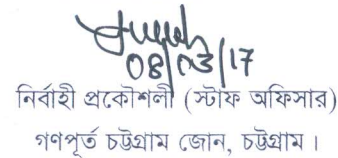 08/03/17
নির্বাহী প্রকৌশলী (স্টাফ অফিসার)
গণপূর্ত চট্টগ্রাম জোন, চট্টগ্রাম।